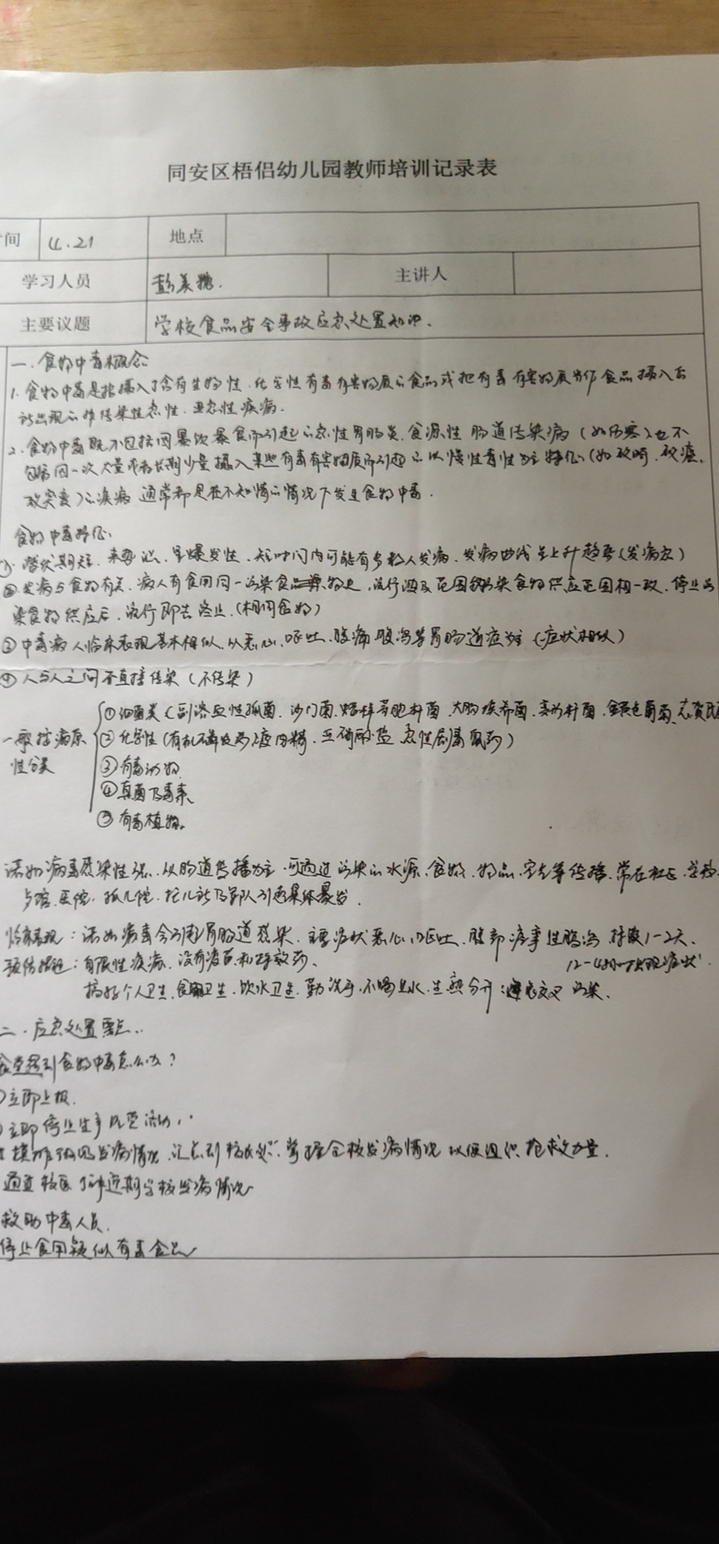 同安区梧侣幼儿园教师培训记录表
间 4.21 地点
学习人员 彭美 主讲人
主要议题 学校食品安全事故应急处置知识.
一.食物中毒概念
1.食物中毒是指摄入了含有生物性.化学性有毒有害物质的食品或把有毒有害物质当作食品摄入后
所出现的非传染性急性.亚急性疾病.
2.食物中毒既不包括因暴饮暴食而引起的急性胃肠炎.食源性肠道传染病(如伤寒)也不
包括因一次大量或者长期少量摄入某些有毒有害物质而引起的以慢性毒性为主特征(如致畸.致癌.
致突变)的疾病 通常都是在不知情的情况下发生食物中毒.
食物中毒特征
①潜伏期短.来势 .呈爆发性.短时间内可能有多数人发病.发病曲线呈上升趋势(发病急)
②发病与食物有关.病人有食用同一污染食物史.流行波及范围与污染食物供应范围相一致.停止污
染食物供应后.流行即告终止.(相同食物)
③中毒病人临床表现基本相似.以恶心.呕吐.腹痛腹泻等胃肠道症为主(症状相似)
④人与人之间不直接传染(不传染)
一般按病原
性分类
①细菌类(副溶血性弧菌.沙门菌.蜡样芽胞杆菌.大肠埃希菌. 杆菌.金黄色葡萄.志贺氏
②化学性(有机磷 .亚硝酸盐 急性 )
③有毒动物
④真菌及毒素
⑤有毒植物.
诺如病毒感染性强.以肠道传播为主.可通过污染的水源.食物.物品.空气等传播.常在社区.学校
.医院.孤儿院.托儿所及部队引起集体暴发.
临床表现:诺如病毒会引起胃肠道感染.主要症状恶心.呕吐.腹部 性腹泻 持续1-2天.
12-48小时出现症状.
预防措施:自限性疾病.没有疫苗和特效药.
搞好个人卫生.食品卫生.饮水卫生.勤洗手.不喝生水.生熟分开;避免交叉污染.
二.应急处置要点.
食堂遇到食物中毒怎么办?
立即上报.
立即停止生产经营活动.
发病情况.汇总到校长 .掌握全校发病情况以便组织抢救力量.
通过校医了解近期学校发病情况
救助中毒人员.
停止食用疑似有毒食品